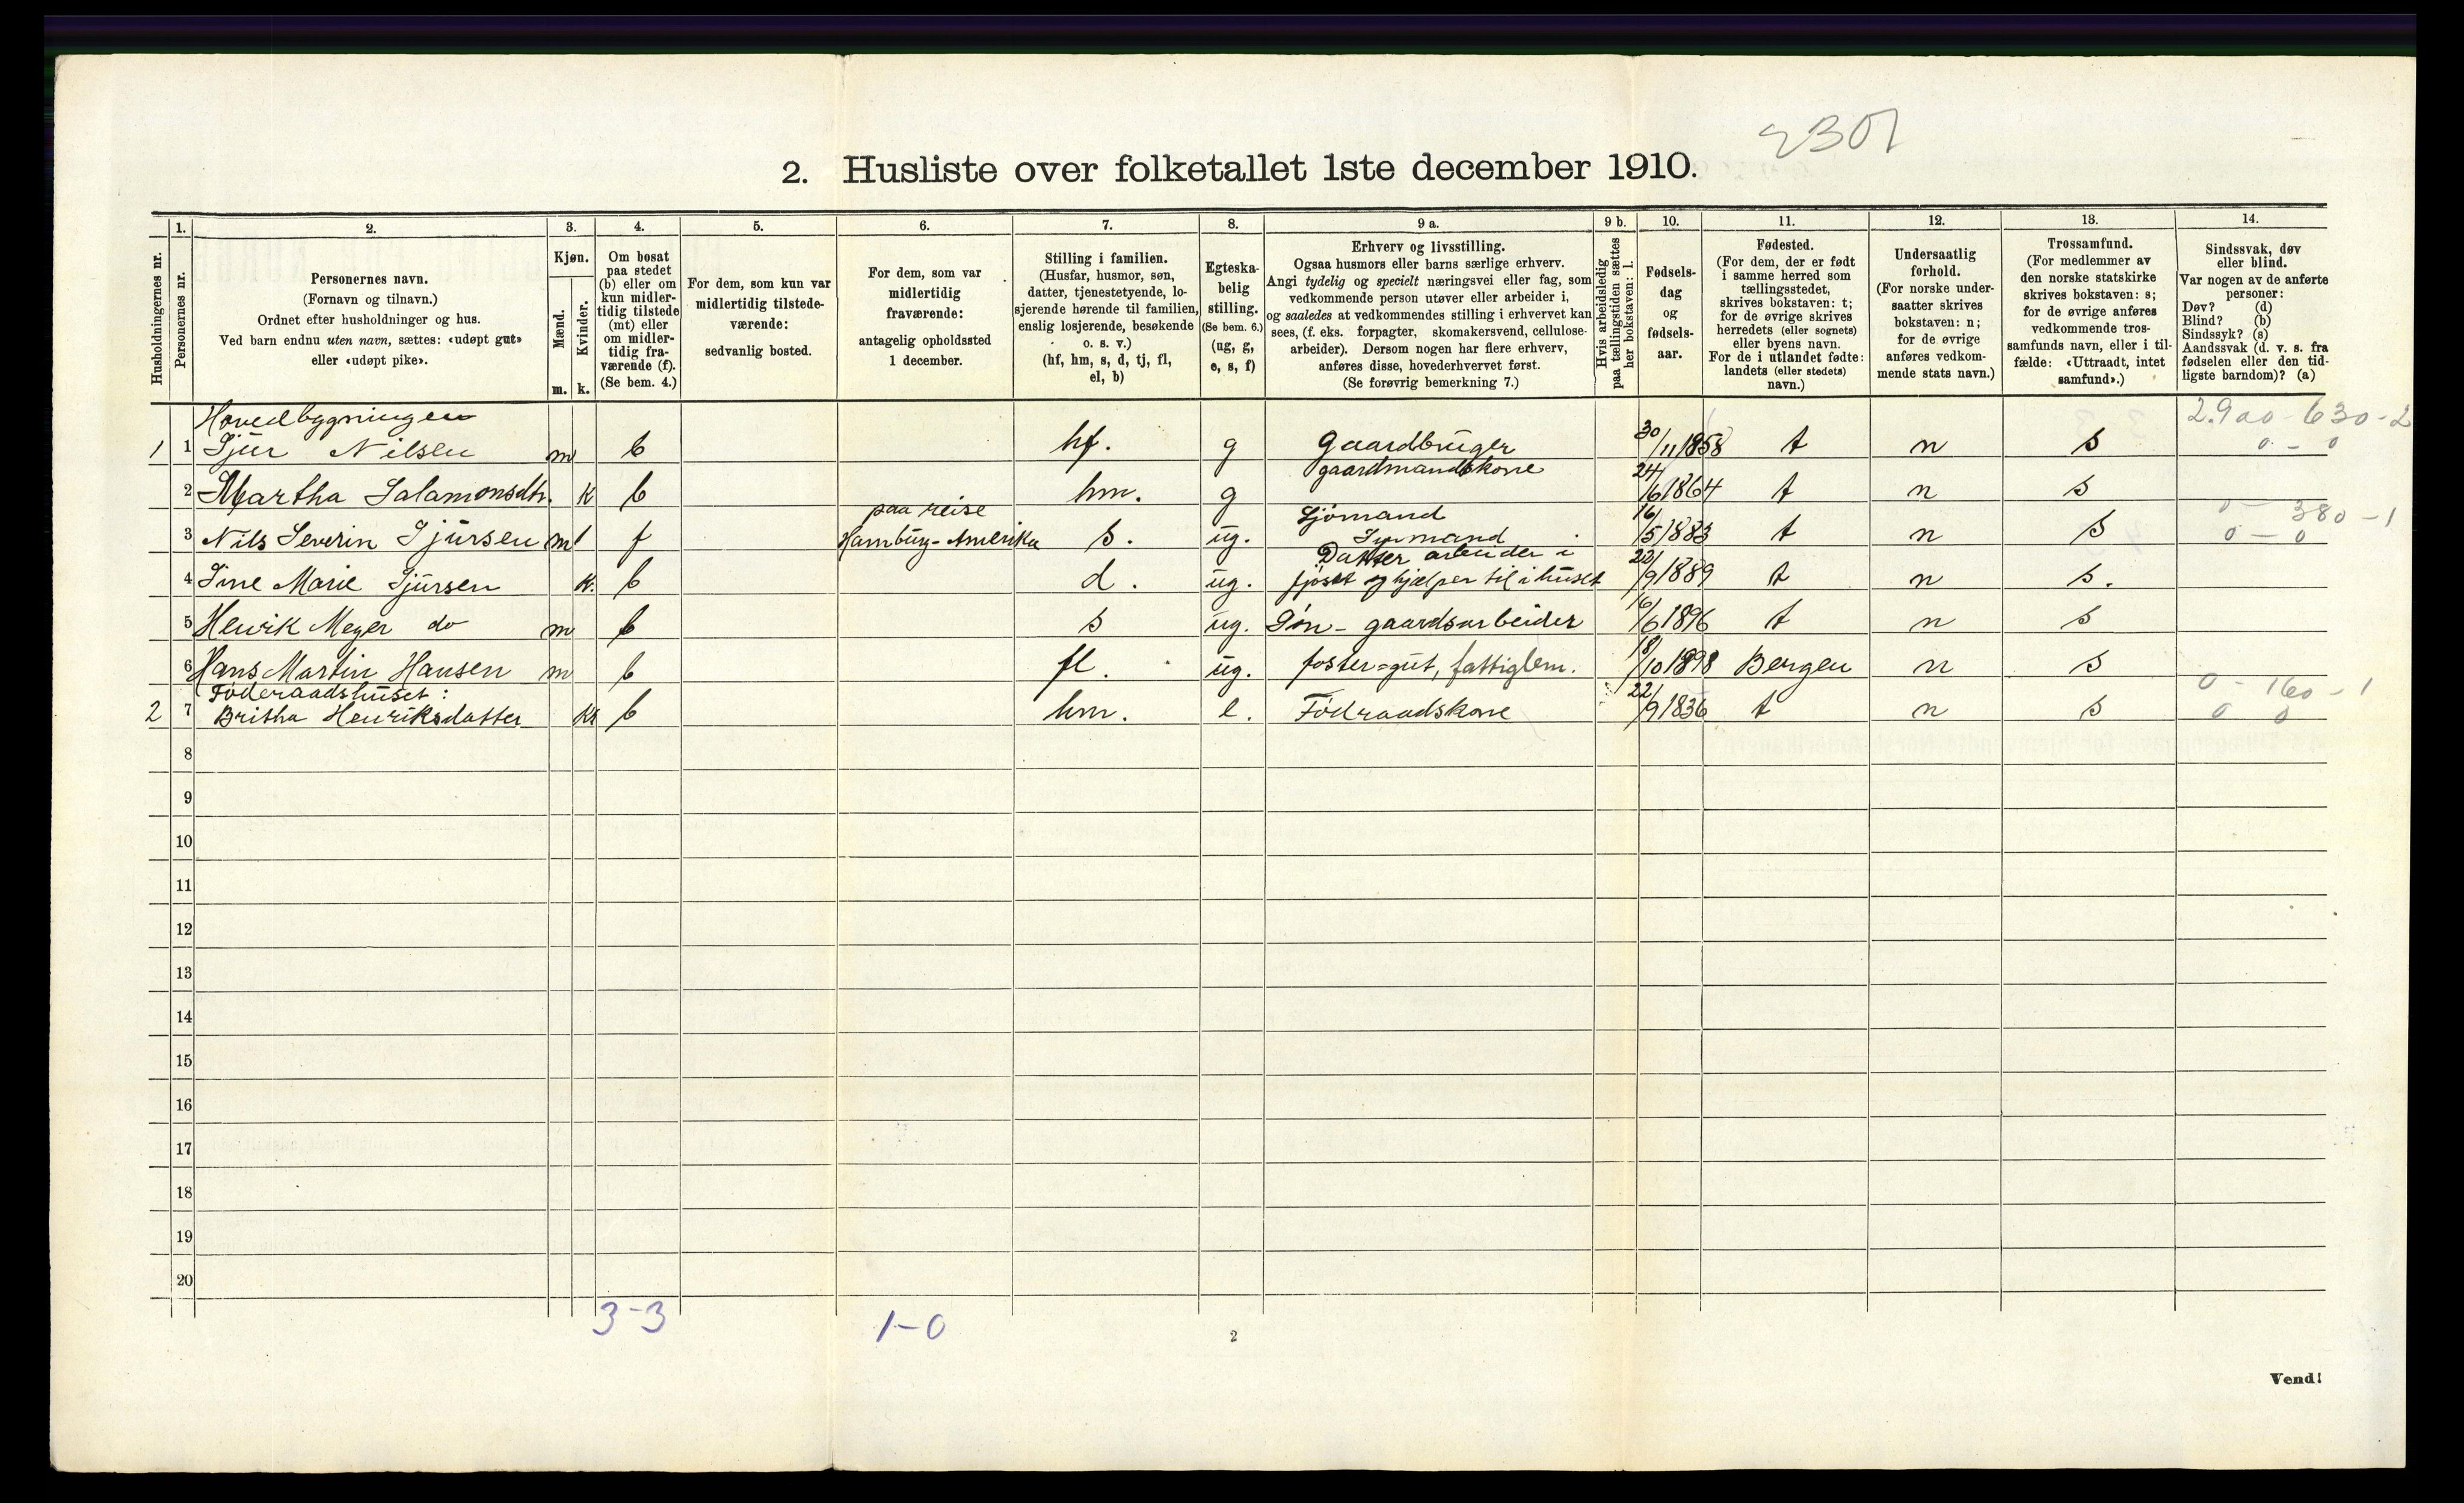 2301
2. Husliste over folketallet 1ste december 1910.
Husholdningernes nr.
1. Personernes nr.
2. Personernes navn.
(Fornavn og tilnavn.)
Ordnet efter husholdninger og hus.
Ved barn endnu uten navn, sættes: «udøpt gut»
eller «udøpt pike».
3. Kjøn.
Mænd. m.
Kvinder. k.
4. Om bosat
paa stedet
(b) eller om
kun midler-
tidig tilstede
(mt) eller
om midler-
tidig fra-
værende (f).
(Se bem. 4.)
5. For dem, som kun var
midlertidig tilstede-
værende:
sedvanlig bosted.
6. For dem, som var
midlertidig
fraværende:
antagelig opholdssted
1 december.
7. Stilling i familien.
(Husfar, husmor, søn,
datter, tjenestetyende, lo-
sjerende hørende til familien,
enslig losjerende, besøkende
o. s. v.)
(hf, hm, s, d, tj, fl,
el, b)
8. Egteska-
belig
stilling.
(Se bem. 6.)
(ug, g,
e, s, f)
9 a. Erhverv og livsstilling.
Ogsaa husmors eller barns særlige erhverv.
Angi tydelig og specielt næringsvei eller fag, som
vedkommende person utøver eller arbeider i,
og saaledes at vedkommendes stilling i erhvervet kan
sees, (f. eks. forpagter, skomakersvend, cellulose-
arbeider). Dersom nogen har flere erhverv,
anføres disse, hovederhvervet først.
(Se forøvrig bemerkning 7.)
9 b. Hvis arbeidsledig
paa tællingstiden sættes
her bokstaven: l.
10. Fødsels-
dag
og
fødsels-
aar.
11. Fødested.
(For dem, der er født
i samme herred som
tællingsstedet,
skrives bokstaven: t;
for de øvrige skrives
herredets (eller sognets)
eller byens navn.
For de i utlandet fødte:
landets (eller stedets)
navn.)
12. Undersaatlig
forhold.
(For norske under-
saatter skrives
bokstaven: n;
for de øvrige
anføres vedkom-
mende stats navn.)
13. Trossamfund.
(For medlemmer av
den norske statskirke
skrives bokstaven: s;
for de øvrige anføres
vedkommende tros-
samfunds navn, eller i til-
fælde: «Uttraadt, intet
samfund».)
14. Sindssvak, døv
eller blind.
Var nogen av de anførte
personer:
Døv? (d)
Blind? (b)
Sindssyk? (s)
Aandssvak (d. v. s. fra
fødselen eller den tid-
ligste barndom)? (a)
Hovedbygningen 2.900-630-2
1 1 Sjur Nilsen m b hf. g Gaardbruger 30/11 1858 t n s 0-0
2 Martha Salamonsdtr. k b hm. g gaardmandskone 24/6 1864 t n s
paa reise Sjömand 0- 380-1
3 Nils Severin Sjursen m f Hamburg-Amerika s. ug. 16/5 1883 t n s 0-0
Datter arbeider i
4 Sine Marie Sjursen k. b d. ug. fjöset og hjælper til i huset 22/9 1889 t n s.
5 Henrik Meyer do m b s ug. Sön - gaardsarbeider 16/6 1896 t n s
6 Hans Martin Hansen m b fl. ug. foster=gut, fattiglem. 18/10 1898 Bergen n s
Föderaadshuset: 0-160-1
2 7 Britha Henriksdatter k b hm. e. Föderaadskone 22/9 1836 t n s 0 0
8
9
10
11
12
13
14
15
16
17
18
19
20
3-3
1-0
2
Vend!